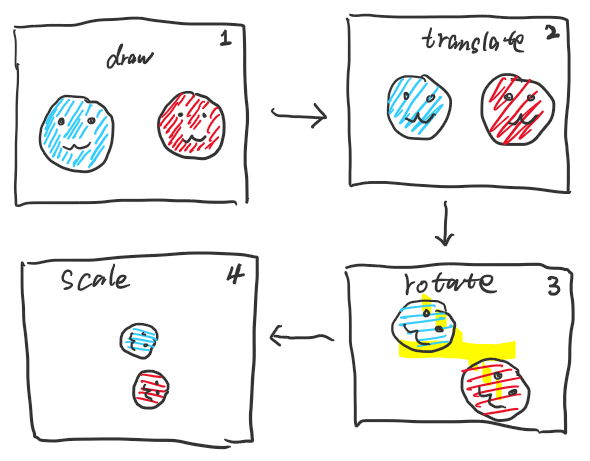 draw
1
translate
2
rotate
3
scale
4